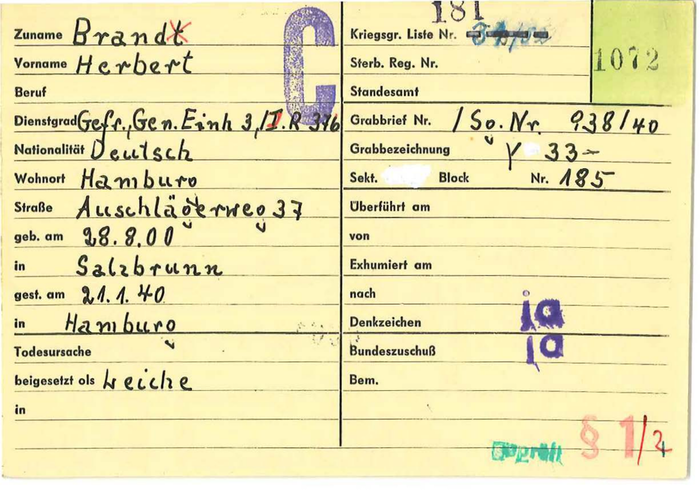 181
C
1072
Zuname Brandt
Vorname Herbert
Beruf
Dienstgrad Gefr., Gen. Einh 3./I. R 376
Nationalität Deutsch
Wohnort Hamburg
Straße Auschlägerweg 37
geb. am 28.8.00
in Salzbrunn
gest. am 21.1.40
in Hamburg
Todesursache
beigesetzt als Leiche
in
Kriegsgr. Liste Nr.
Sterb. Reg. Nr.
Standesamt
Grabbrief Nr. / So. Nr. 938/40
Grabbezeichnung Y 33-
Sekt. Block Nr. 185
Überführt am
von
Exhumiert am
nach
Denkzeichen ja
Bundeszuschuß ja
Bem.
Geprüft
§ 1/2